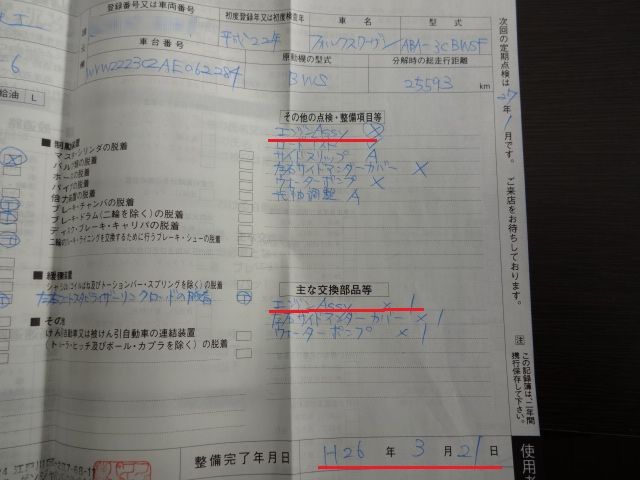 登録番号又は車両番号
初度登録年又は初度検査年
平成22年
車名
フォルクスワーゲン
型式
ABA-3CBWSF
車台番号
WVWZZZ3CZAE062284
原動機の型式
BWS
分解時の総走行距離
25593 km
6
給油 L
■制動装置
マスタ・シリンダの脱着
バルブ類の脱着
ホースの脱着
パイプの脱着
倍力装置の脱着
ブレーキ・チャンバの脱着
ブレーキ・ドラム(二輪を除く)の脱着
ディスク・ブレーキ・キャリパの脱着
二輪のブレーキ・ライニングを交換するために行うブレーキ・シューの脱着
■緩衝装置
シャシばね(コイルばね及びトーションバー・スプリングを除く)の脱着
左右フロントスタビライザーリンクロッドの脱着
■その他
けん引自動車又は被けん引自動車の連結装置
(トレーラ・ヒッチ及びボール・カプラを除く)の脱着
その他の点検・整備項目等
エンジンAssy X
サイドスリップ A
左右サイドアンダーカバー X
ウォーターポンプ X
光軸調整 A
主な交換部品等
エンジンAssy × 1
左右サイドアンダーカバー × 1
ウォーターポンプ × 1
整備完了年月日
H26年 3月 21日
次回の定期点検は 27年 1月です。 ご来店をお待ちしております。
注 この記録簿は、二年間携行保存して下さい。
使用者